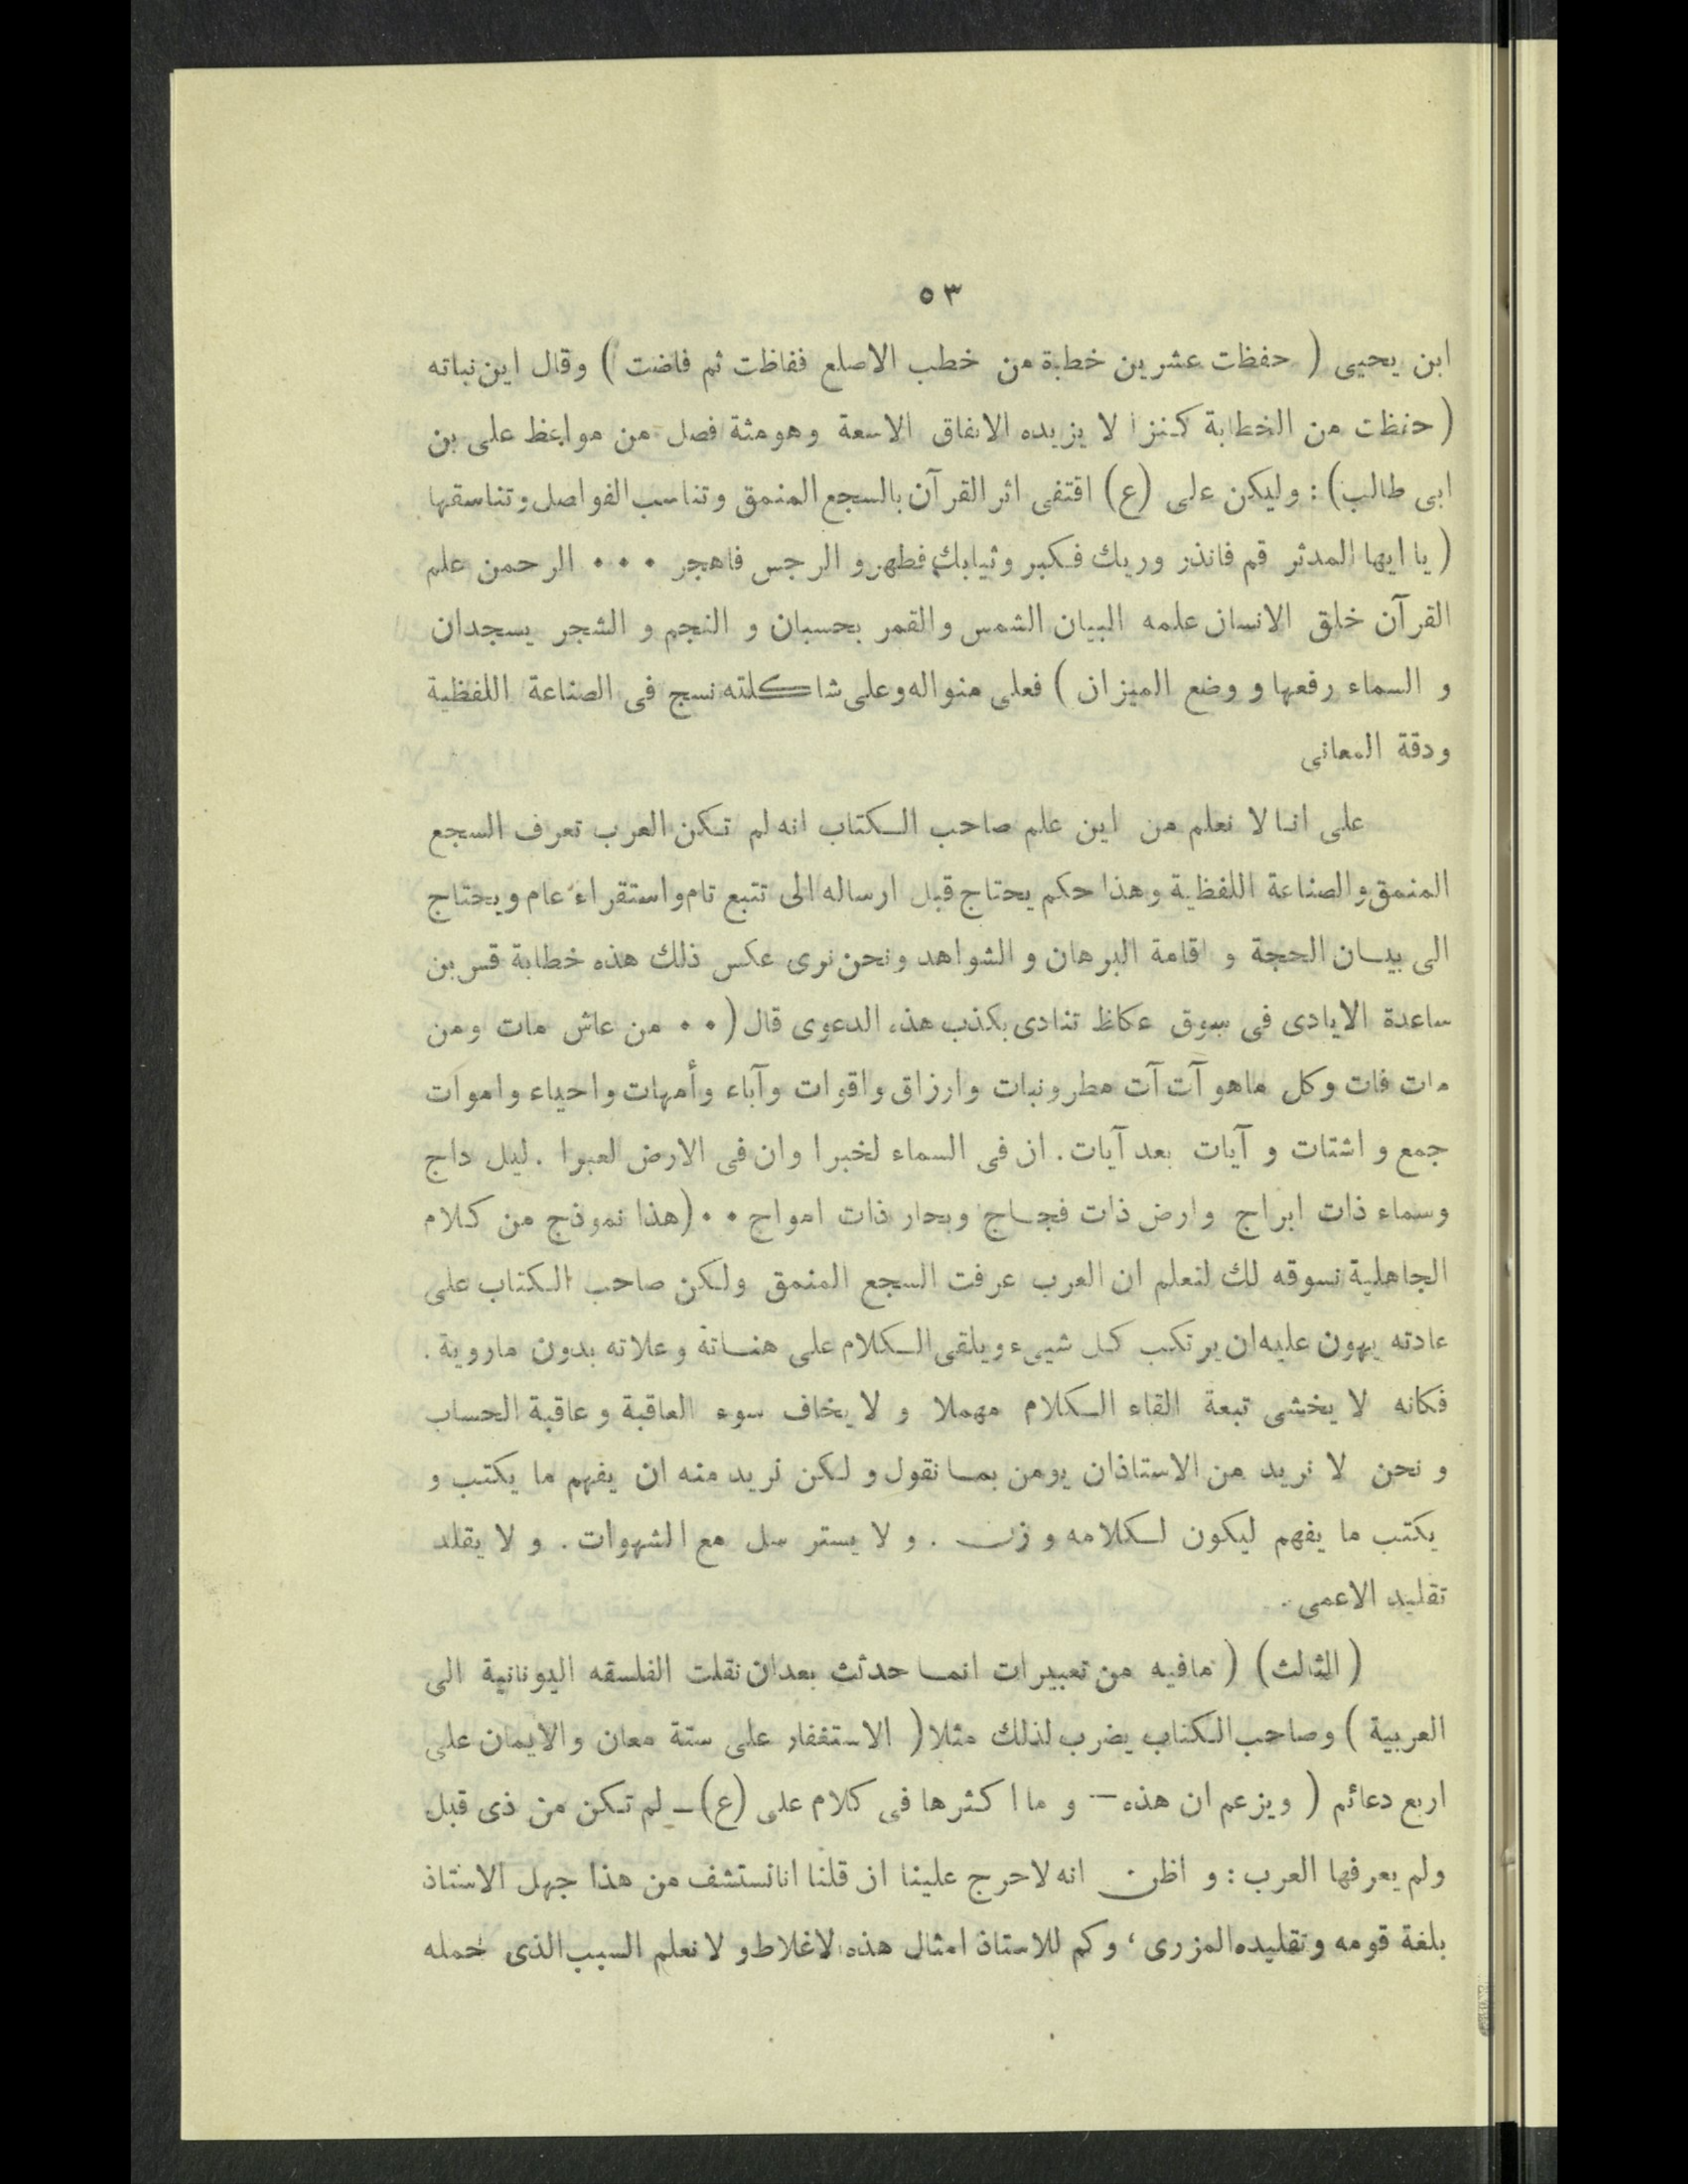 ٥٣
ابن يحيى ( حفظت عشرين خطبة من خطب الاصلع ففاظت ثم فاضت ) وقال اين نباته
( حفظت من الخطابة كنزا لا يزيده الانفاق الاسعة وهومئة فصل من مواعظ على بن
ابى طالب) : وليكن على (ع) اقتفى اثر القرآن بالسجع المنمق وتناسب الفواصل وتناسقها
( يا ايها المدثر قم فانذر وربك فكبر وثيابك فطهر و الرجس فاهجر ٠٠٠ الرحمن علم
القرآن خلق الانسان علمه البيان الشمس والقمر بحسبان و النجم و الشجر يسجدان
و السماء رفعها و وضع الميزان ) فعلى منواله وعلى شاكلته نسج فى الصناعة اللفظية
ودقة المعانى
على انا لا نعلم من اين علم صاحب الكتاب انه لم تكن العرب تعرف السجع
المنمق والصناعة اللفظية وهذا حكم يحتاج قبل ارساله الى تتبع تام واستقراء عام ويحتاج
الى بيان الحجة و اقامة البرهان و الشواهد ونحن نرى عكس ذلك هذه خطابة قس بن
ساعدة الايادى فى سوق عكاظ تنادى بكذب هذه الدعوى قال ( ٠٠ من عاش مات ومن
مات فات وكل ماهو آت آت مطر ونبات وارزاق واقوات وآباء وأمهات واحياء واموات
جمع و اشتات و آيات بعد آيات . ان فى السماء لخبرا وان فى الارض لعبرا . ليل داج
وسماء ذات ابراج وارض ذات فجاج وبحار ذات امواج ٠٠ (هذا نموذج من كلام
الجاهلية نسوقه لك لتعلم ان العرب عرفت السجع المنمق ولكن صاحب الكتاب على
عادته يهون عليه ان يرتكب كل شيىء ويلقى الكلام على هناتة وعلاته بدون ماروية .
فكانه لا يخشى تبعة القاء الكلام مهملا و لا يخاف سوء العاقبة و عاقبة الحساب
و نحن لا نريد من الاستاذان يومن بما نقول و لكن نريد منه ان يفهم ما يكتب و
يكتب ما يفهم ليكون لكلامه وزن . و لا يستر سل مع الشهوات . و لا يقلد
تقليد الاعمى .
( الثالث ) ( مافيه من تعبيرات انما حدثت بعدان نقلت الفلسقه اليونانية الى
العربية ) وصاحب الكتاب يضرب لذلك مثلا ( الاستغفار على ستة معان والايمان على
اربع دعائم ( ويزعم ان هذه — و ما اكثرها فى كلام على (ع) — لم تكن من ذى قبل
ولم يعرفها العرب : و اظن انه لاحرج علينا ان قلنا انانستشف من هذا جهل الاستاذ
بلغة قومه وتقليده المزرى ، وكم للاستاذ امثال هذه الاغلاط و لا نعلم السبب الذى حمله